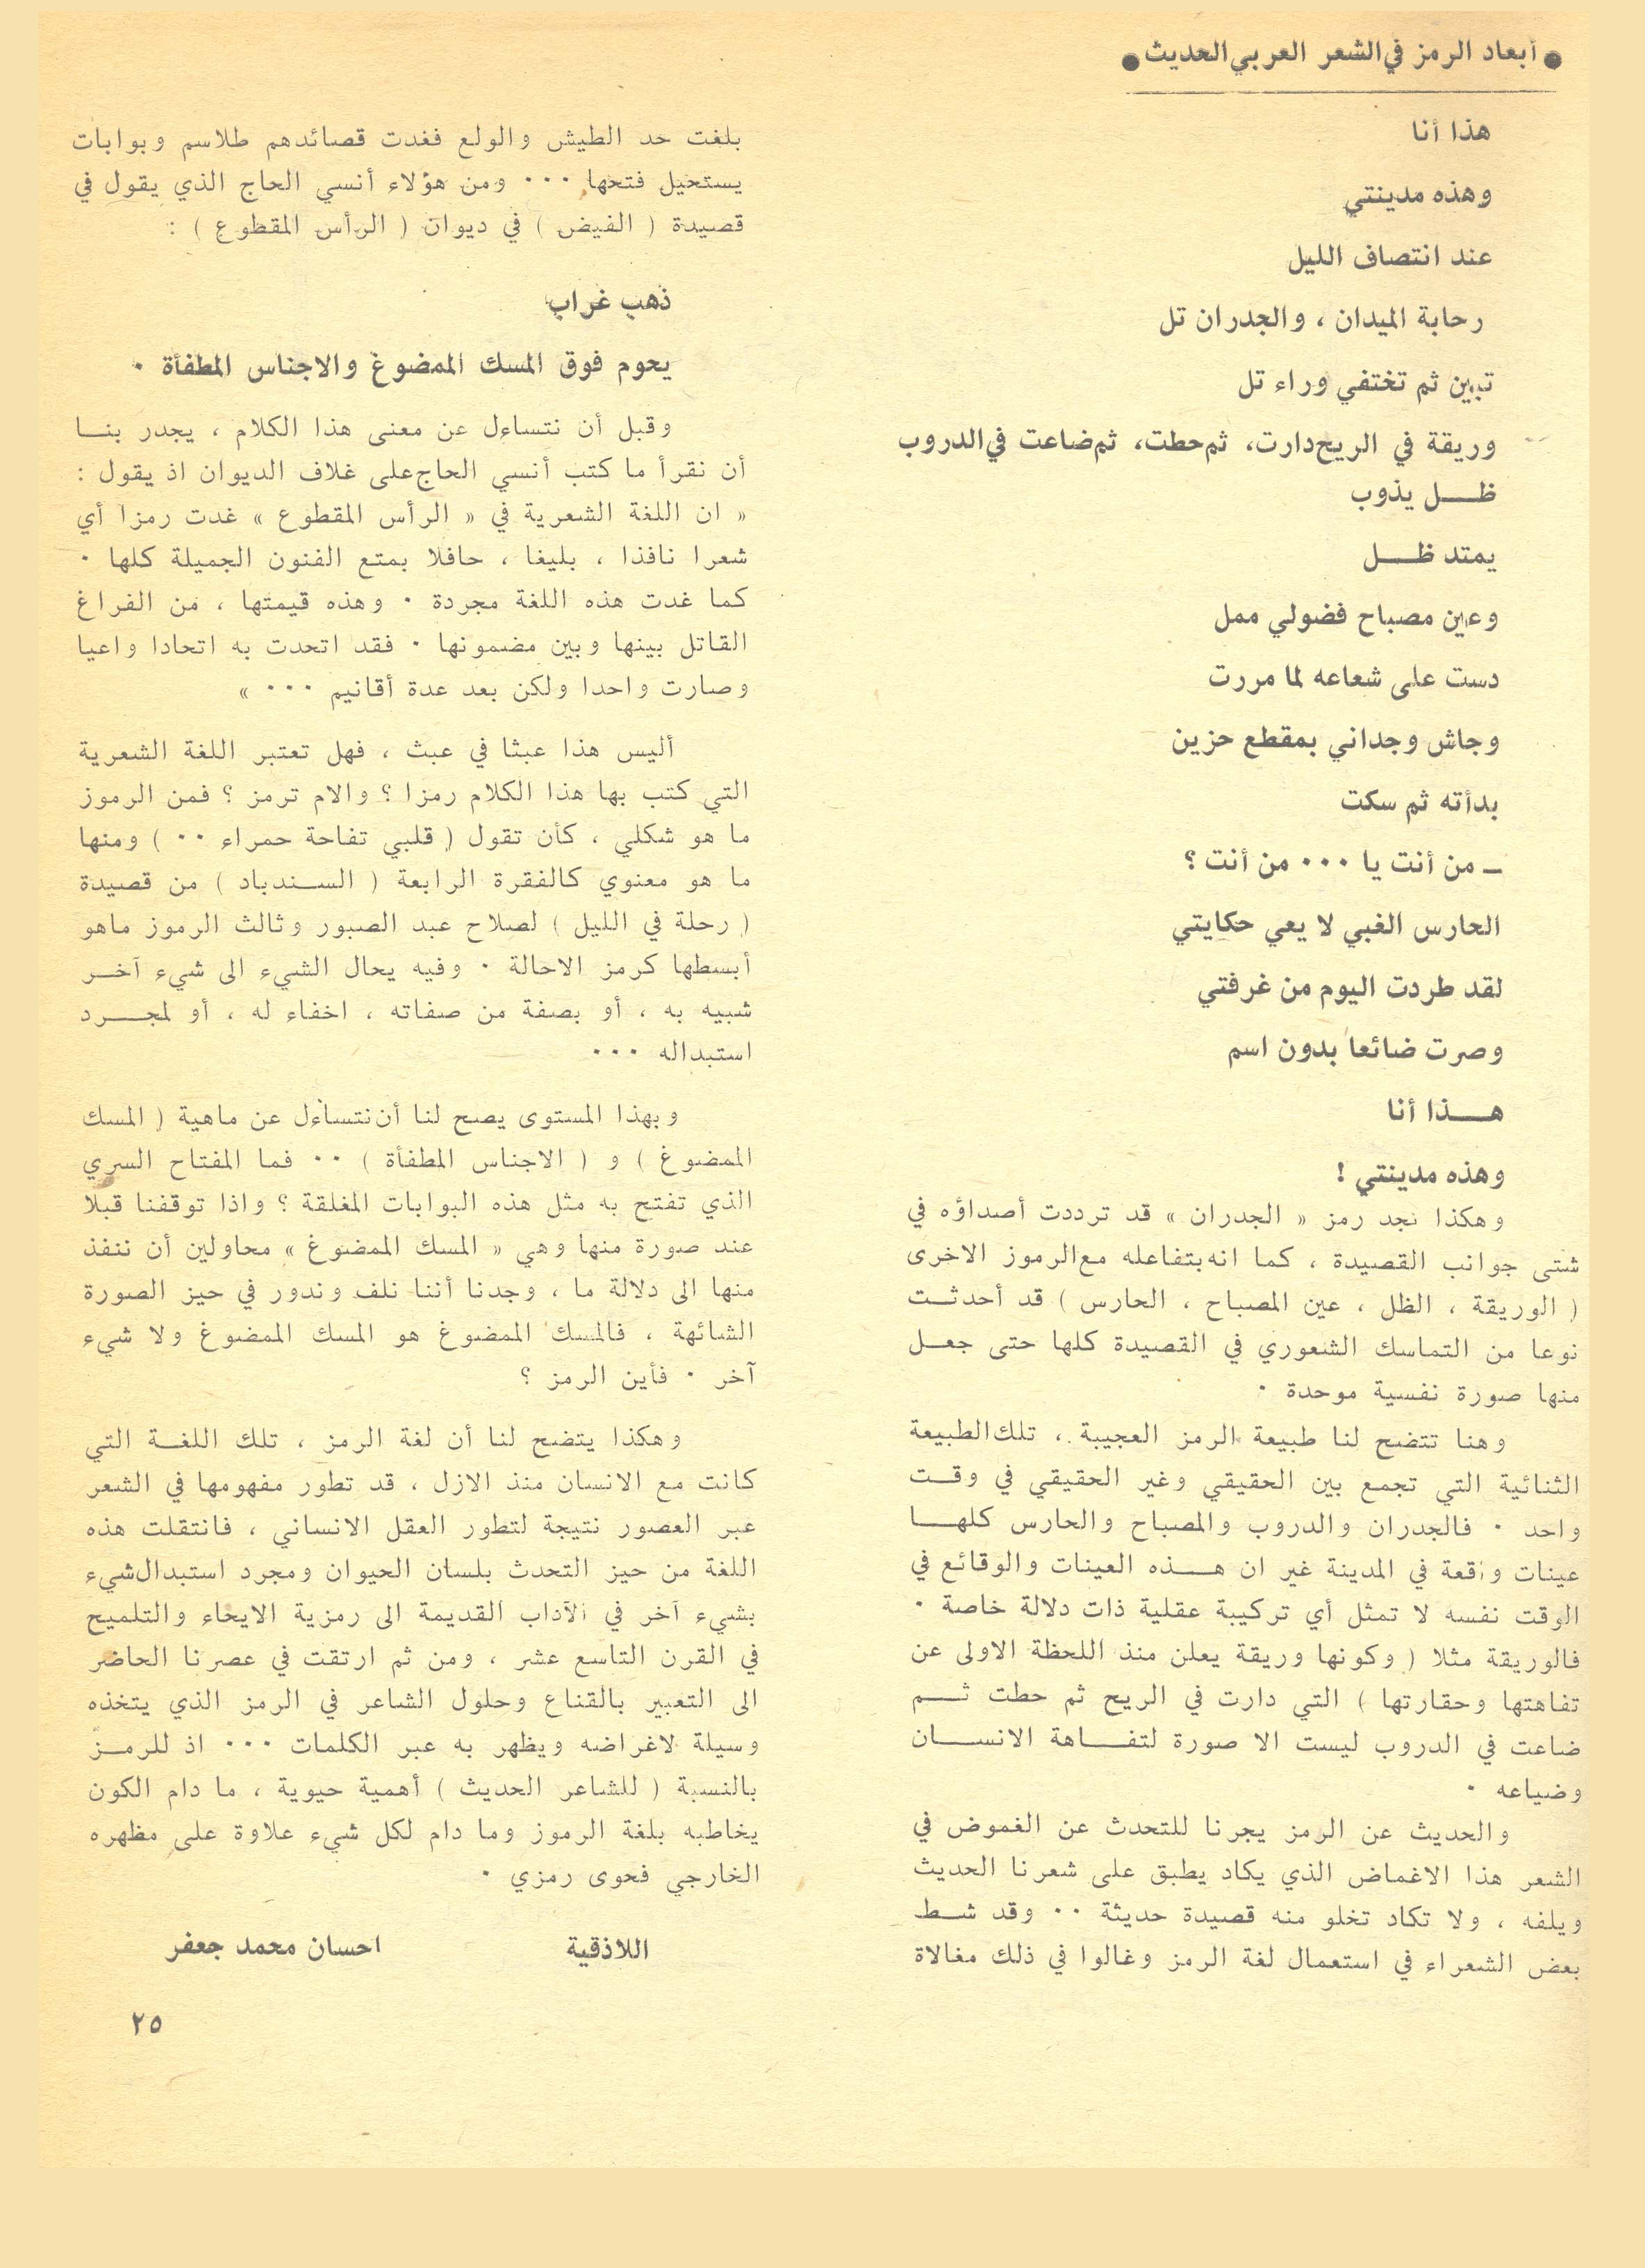 ● أبعاد الرمز في الشعر العربي الحديث ●
هذا أنا
وهذه مدينتي
عند انتصاف الليل
رحابة الميدان ، والجدران تل
تبين ثم تختفي وراء تل
وريقة في الريح دارت، ثم حطت، ثم ضاعت في الدروب
ظـــل يذوب
يمتد ظـــل
وعين مصباح فضولي ممل
دست على شعاعه لما مررت
وجاش وجداني بمقطع حزين
بدأته ثم سكت
ـ من أنت يا ٠٠٠ من أنت ؟
الحارس الغبي لا يعي حكايتي
لقد طردت اليوم من غرفتي
وصرت ضائعا بدون اسم
هـــذا أنا
وهذه مدينتي !
وهكذا نجد رمز « الجدران » قد ترددت أصداؤه في
شتى جوانب القصيدة ، كما انه بتفاعله مع الرموز الاخرى
( الوريقة ، الظل ، عين المصباح ، الحارس ) قد أحدثــت
نوعا من التماسك الشعوري في القصيدة كلها حتى جعــل
منها صورة نفسية موحدة ٠
وهنا تتضح لنا طبيعة الرمز العجيبة ، تلك الطبيعة
الثنائية التي تجمع بين الحقيقي وغير الحقيقي في وقــت
واحد ٠ فالجدران والدروب والمصباح والحارس كلهـــا
عينات واقعة في المدينة غير ان هـــذه العينات والوقائع في
الوقت نفسه لا تمثل أي تركيبة عقلية ذات دلالة خاصة ٠
فالوريقة مثلا ( وكونها وريقة يعلن منذ اللحظة الاولى عن
تفاهتها وحقارتها ) التي دارت في الريح ثم حطت ثـــم
ضاعت في الدروب ليست الا صورة لتفـــاهة الانســـان
وضياعه ٠
والحديث عن الرمز يجرنا للتحدث عن الغموض في
الشعر هذا الاغماض الذي يكاد يطبق على شعرنا الحديث
ويلفه ، ولا تكاد تخلو منه قصيدة حديثة ٠٠ وقد شــط
بعض الشعراء في استعمال لغة الرمز وغالوا في ذلك مغالاة
بلغت حد الطيش والولع فغدت قصائدهم طلاسم وبوابات
يستحيل فتحها ٠٠٠ ومن هؤلاء أنسي الحاج الذي يقول في
قصيدة ( الفيض ) في ديوان ( الرأس المقطوع ) :
ذهب غراب
يحوم فوق المسك الممضوغ والاجناس المطفأة ٠
وقبل أن نتساءل عن معنى هذا الكلام ، يجدر بنــا
أن نقرأ ما كتب أنسي الحاج على غلاف الديوان اذ يقول :
« ان اللغة الشعرية في « الرأس المقطوع » غدت رمزا أي
شعرا نافذا ، بليغا ، حافلا بمتع الفنون الجميلة كلها ٠
كما غدت هذه اللغة مجردة ٠ وهذه قيمتها ، من الفراغ
القاتل بينها وبين مضمونها ٠ فقد اتحدت به اتحادا واعيا
وصارت واحدا ولكن بعد عدة أقانيم ٠٠٠ »
أليس هذا عبثا في عبث ، فهل تعتبر اللغة الشعرية
التي كتب بها هذا الكلام رمزا ؟ والام ترمز ؟ فمن الرموز
ما هو شكلي ، كأن تقول ( قلبي تفاحة حمراء ٠٠ ) ومنها
ما هو معنوي كالفقرة الرابعة ( الســندباد ) من قصيدة
( رحلة في الليل ) لصلاح عبد الصبور وثالث الرموز ماهو
أبسطها كرمز الاحالة ٠ وفيه يحال الشيء الى شيء آخــر
شبيه به ، أو بصفة من صفاته ، اخفاء له ، أو لمجـــرد
استبداله ٠٠٠
وبهذا المستوى يصح لنا أن نتساءل عن ماهية ( المسك
الممضوغ ) و ( الاجناس المطفأة ) ٠٠ فما المفتاح السري
الذي تفتح به مثل هذه البوابات المغلقة ؟ واذا توقفنا قبلا
عند صورة منها وهي « المسك الممضوغ » محاولين أن ننفذ
منها الى دلالة ما ، وجدنا أننا نلف وندور في حيز الصورة
الشائهة ، فالمسك الممضوغ هو المسك الممضوغ ولا شيء
آخر ٠ فأين الرمز ؟
وهكذا يتضح لنا أن لغة الرمز ، تلك اللغــة التي
كانت مع الانسان منذ الازل ، قد تطور مفهومها في الشعر
عبر العصور نتيجة لتطور العقل الانساني ، فانتقلت هذه
اللغة من حيز التحدث بلسان الحيوان ومجرد استبدال شيء
بشيء آخر في الآداب القديمة الى رمزية الايحاء والتلميح
في القرن التاسع عشر ، ومن ثم ارتقت في عصرنا الحاضر
الى التعبير بالقناع وحلول الشاعر في الرمز الذي يتخذه
وسيلة لاغراضه ويظهر به عبر الكلمات ٠٠٠ اذ للرمــز
بالنسبة ( للشاعر الحديث ) أهمية حيوية ، ما دام الكون
يخاطبه بلغة الرموز وما دام لكل شيء علاوة على مظهره
الخارجي فحوى رمزي ٠
اللاذقية احسان محمد جعفر
٢٥